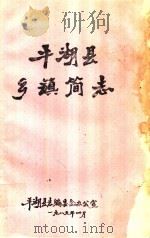 平湖县
乡镇简志
平湖县志编纂委办公室
一九八五年一月